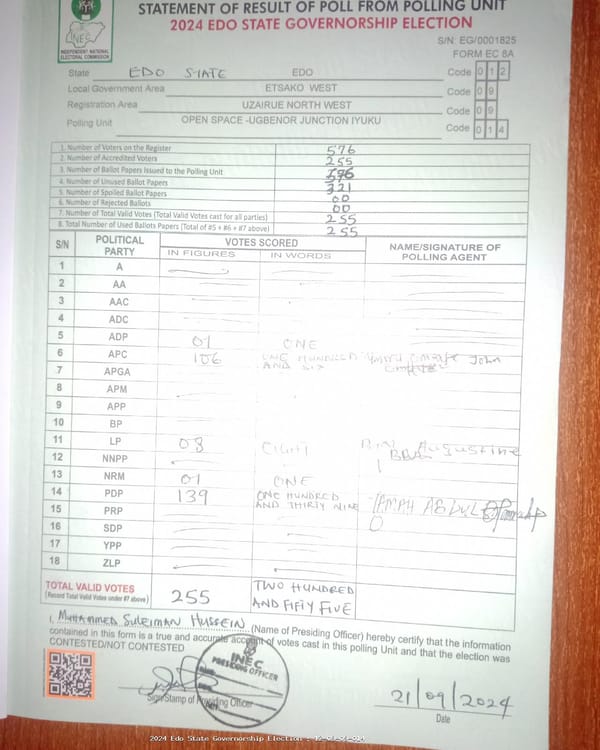 INEC
INDEPENDENT NATIONAL ELECTORAL COMMISSION
STATEMENT OF RESULT OF POLL FROM POLLING UNIT
2024 EDO STATE GOVERNORSHIP ELECTION
S/N: EG/0001825
FORM EC 8A
State EDO STATE EDO Code 0 1 2
Local Government Area ETSAKO WEST Code 0 9
Registration Area UZAIRUE NORTH WEST Code 0 9
Polling Unit OPEN SPACE -UGBENOR JUNCTION IYUKU Code 0 1 4
1. Number of Voters on the Register 576
2. Number of Accredited Voters 255
3. Number of Ballot Papers Issued to the Polling Unit
4. Number of Unused Ballot Papers 321
5. Number of Spoiled Ballot Papers 00
6. Number of Rejected Ballots 00
7. Number of Total Valid Votes (Total Valid Votes cast for all parties) 255
8. Total Number of Used Ballots Papers (Total of #5 + #6 + #7 above) 255
S/N POLITICAL PARTY VOTES SCORED NAME/SIGNATURE OF POLLING AGENT
IN FIGURES IN WORDS
1 A
2 AA
3 AAC
4 ADC
5 ADP 01 ONE
6 APC 106 ONE HUNDRED AND SIX John
7 APGA
8 APM
9 APP
10 BP
11 LP 08 EIGHT Augustine
12 NNPP
13 NRM 01 ONE
14 PDP 139 ONE HUNDRED AND THIRTY NINE ABDUL
15 PRP
16 SDP
17 YPP
18 ZLP
TOTAL VALID VOTES (Record Total Valid Votes under #7 above) 255 TWO HUNDRED AND FIFTY FIVE
I, MUHAMMED SULEIMAN HUSSEIN (Name of Presiding Officer) hereby certify that the information
contained in this form is a true and accurate account of votes cast in this polling Unit and that the election was
CONTESTED/NOT CONTESTED
INEC
PRESIDING OFFICER
Sign/Stamp of Presiding Officer
21/09/2024
Date
2024 Edo State Governorship Election